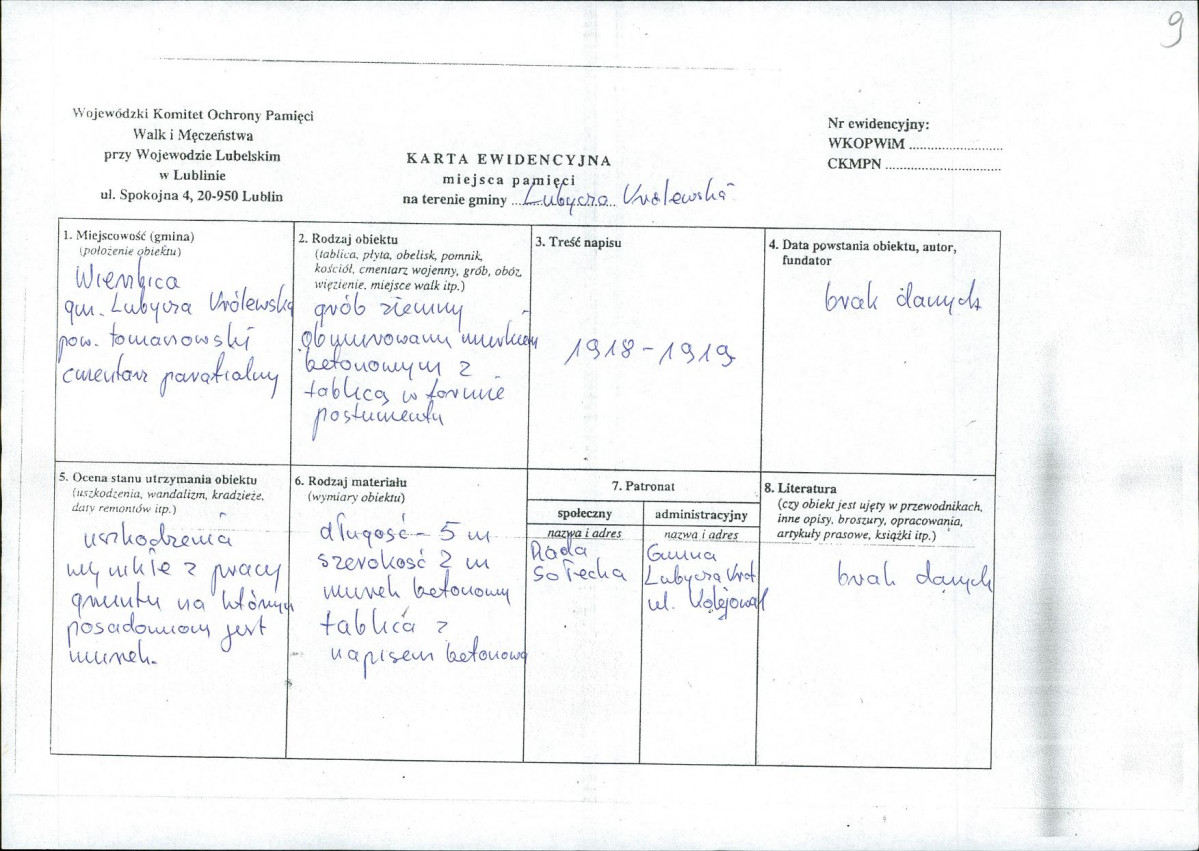 9
Wojewódzki Komitet Ochrony Pamięci
Walk i Męczeństwa
przy Wojewodzie Lubelskim
w Lublinie
ul. Spokojna 4, 20-950 Lublin
KARTA EWIDENCYJNA
miejsca pamięci
na terenie gminy ...Lubycza... Królewska
Nr ewidencyjny:
WKOPWiM ..........................
CKMPN ................................
1. Miejscowość (gmina)
(położenie obiektu)
Wierzbica
gm. Lubycza Królewska
pow. tomaszowski
cmentarz parafialny
2. Rodzaj obiektu
(tablica, płyta, obelisk, pomnik,
kościół, cmentarz wojenny, grób, obóz,
więzienie, miejsce walk itp.)
grób ziemny
obmurowany murkiem
betonowym z
tablicą w formie
postumentu
3. Treść napisu
1918 - 1919
4. Data powstania obiektu, autor,
fundator
brak danych
5. Ocena stanu utrzymania obiektu
(uszkodzenia, wandalizm, kradzieże,
daty remontów itp.)
uszkodzenia
wynikłe z pracy
gruntu na którym
posadowiony jest
murek.
6. Rodzaj materiału
(wymiary obiektu)
długość - 5 m
szerokość 2 m
murek betonowy
tablica z
napisem betonowa
7. Patronat
społeczny
nazwa i adres
Rada
Sołecka
administracyjny
nazwa i adres
Gmina
Lubycza Król
ul. Kolejowa 1
8. Literatura
(czy obiekt jest ujęty w przewodnikach,
inne opisy, broszury, opracowania,
artykuły prasowe, książki itp.)
brak danych